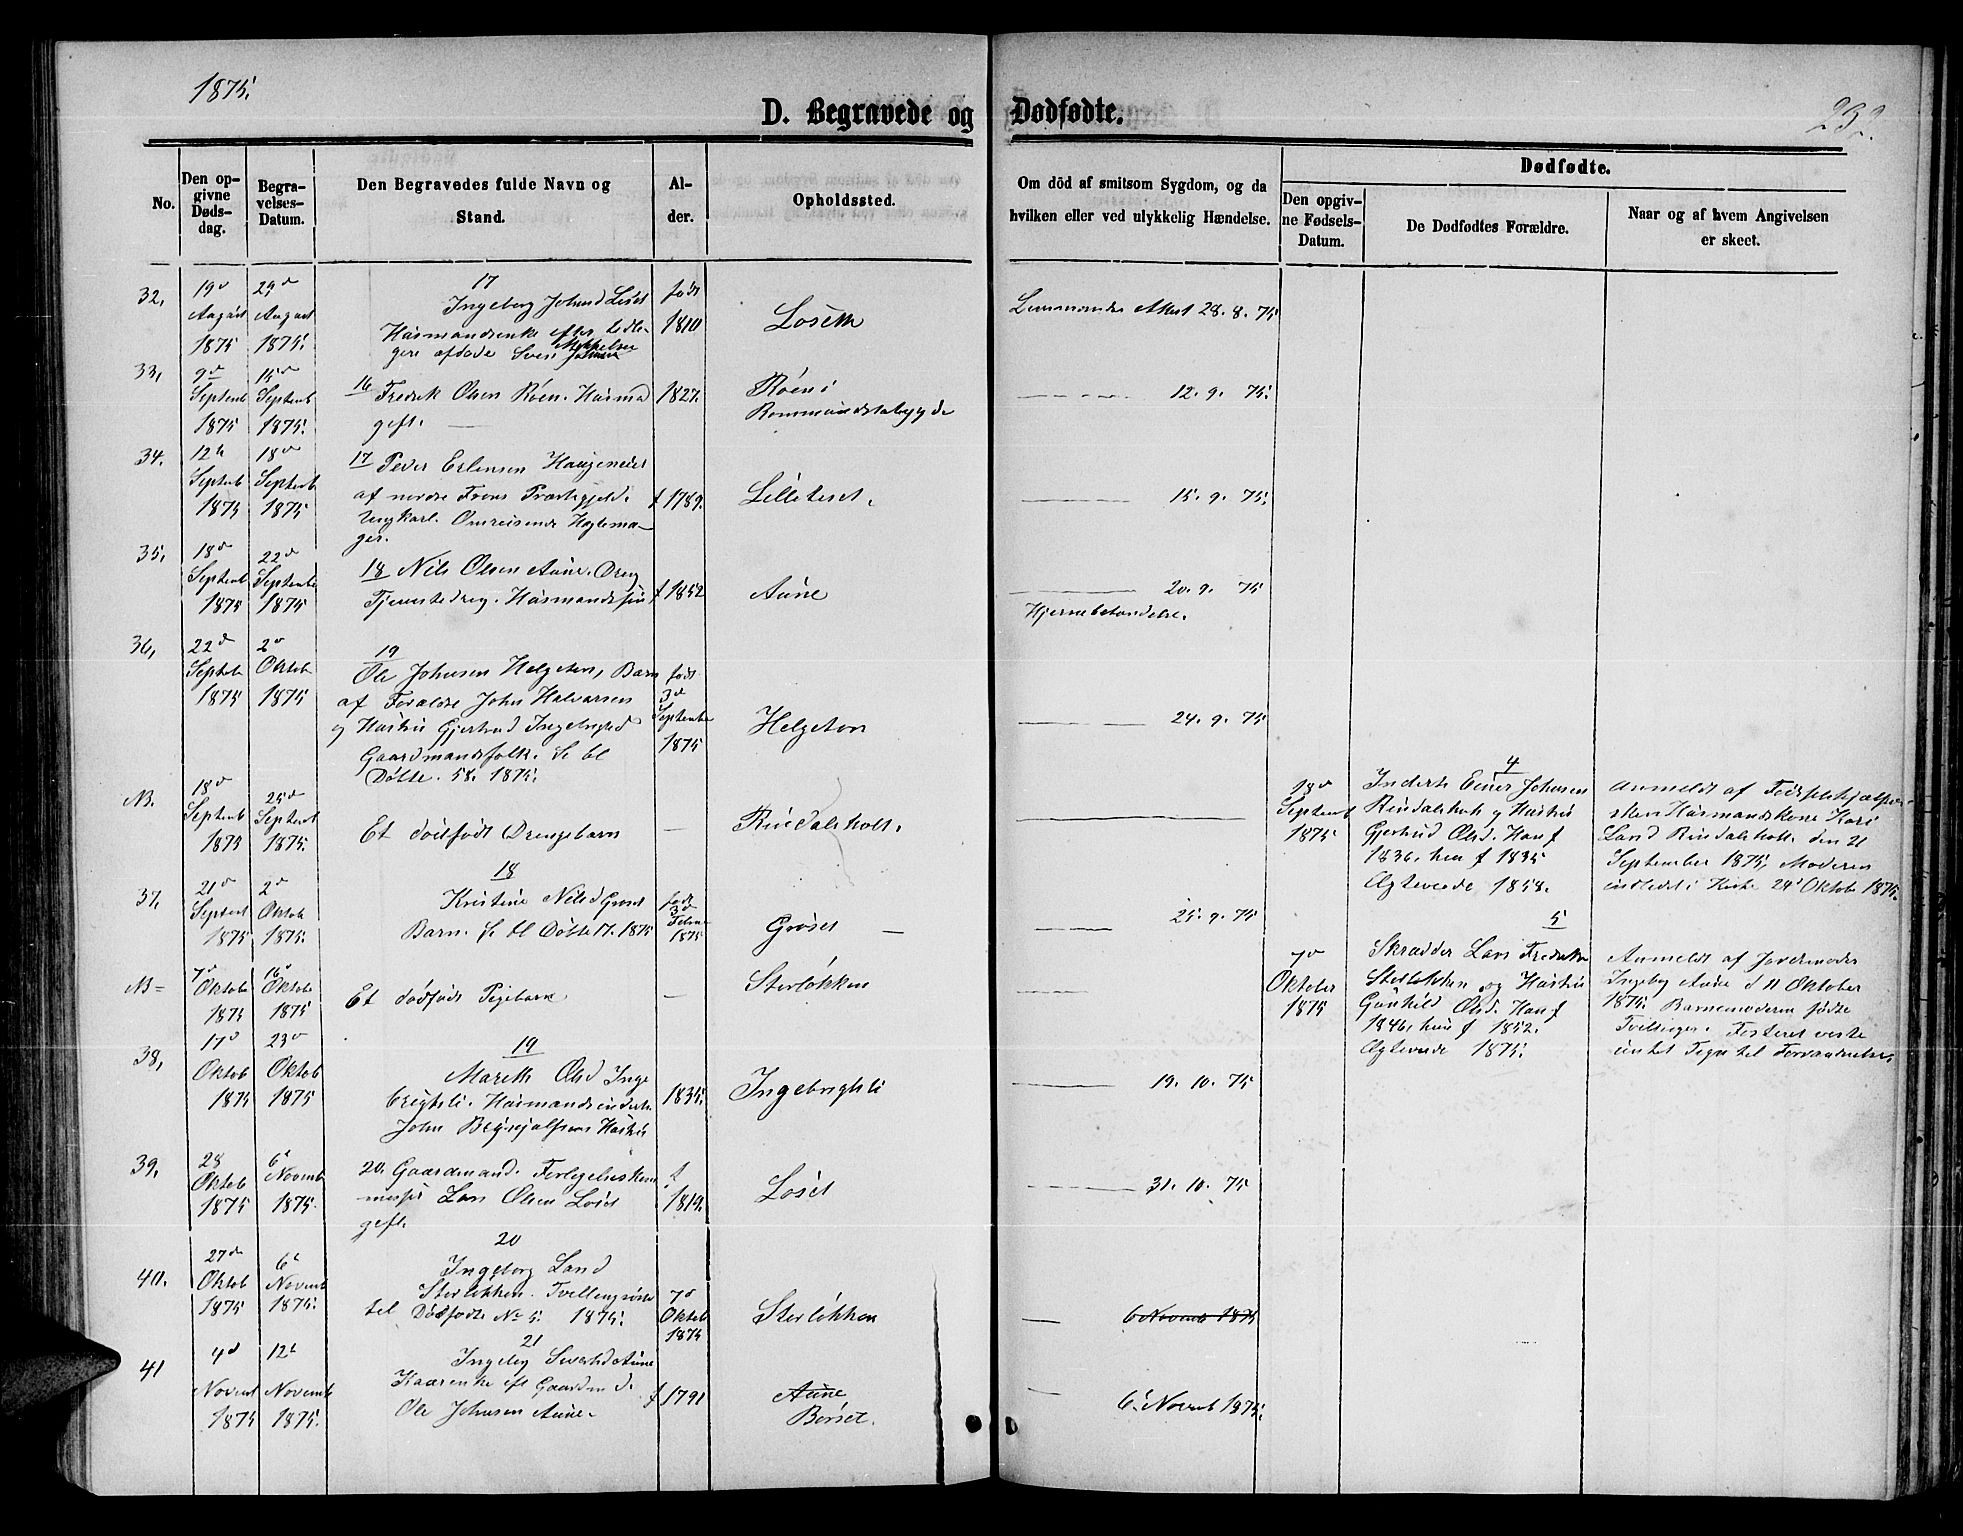 1875.
D. Begravede og Dødfødte.
232.
No.
Den opgivne Dødsdag.
Begravelses-Datum.
Den Begravedes fulde Navn og Stand.
Alder.
Opholdssted.
Om död af smitsom Sygdom, og da hvilken eller ved ulykkelig Hændelse.
Dødfødte.
Den opgivne Fødsels-Datum.
De Dødfødtes Forældre.
Naar og af hvem Angivelsen er skeet.
32, 19d August 1875
29d August 1875.
17
Ingeborg Johnsd Løset
Husmandsenke efter
afdøde Sven
født 1810
Løseth
Lensmandens Attest 28. 8. 75
33, 9d Septemb 1875
15d Septemb 1875.
16 Fredrik Olsen Röen. Husmd
gift.
1827.
Röen i
Rommundstadbygde
12. 9. 75.
34. 12te Septemb 1875
18d Septemb 1875
17 Peder Erlensen Haugeneier
af nordre Frons Præstegjeld.
Ungkarl. Omreisende
f 1789.
Lilleløset.
15. 9. 75.
35, 18d Septemb 1875
22d Septembr 1875
18 Nils Olsen Aune. Dreng
Tjenestedreng. Husmandssøn
f 1852
Aune
20. 9. 75
Hjernebetændelse.
36, 22d Septeb 1875
2d Oktob 1875
19
Ole Johnsen Helgeton, Barn
af Forældre John Halvorsen
og Hustru Gjertrud Ingebrigtsd
Gaardmandsfolk. Se bl
Døbte. 58. 1875.
født 3d Septembr 1875
Helgeton
24. 9. 75
N. 18d Septemb 1875
25d Septemb 1875.
Et dödfødt Drengebarn
—
Rindalsholt.
18d Septemb 1875
4
Inderst Einer Johnsen
Rindalsholt og Hustru
Gjertrud Olsd. Han f
1836, hun f 1835
Ægteviede 1858.
Anmeldt af
Husmandskone Kari
Larsd Rindalsholt den 21
September 1875, Moderen
indledet i Kirke 24d Oktob 1875.
37, 21d Septemb 1875
2d Oktob 1875.
18
Kristine Nilsd Grøset
Barn. Se bl Døbte 17. 1875
født 3d Febru 1875
Grøset
25. 9. 75
N= 7d Oktob 1875
16d Oktob 1875
Et dødfødt Pigebarn
—
Storløkken
7d Oktober 1875
5
Skrædder Lars Fredriksn
Storløkken og Hustru
Gunhild Olsd. Han f
1846, hun f 1852.
Ægteviede 1875.
Anmeldt af Jordemoder
Ingebg Aune d 11 Oktober
1875. Barnemoderen fødte
Tvillinger. Fosteret viste
intet Tegn til Forraadnelse,
38, 17d Oktob 1875
23d Oktob 1875
19
Marith Olsd Inge
brigtsli. Husmandsinderst
John Hustru
1835.
Ingebrigtsli
19. 10. 75
39, 28 Oktob 1875
6d Novemb 1875.
20. Gaardmand. Forligelseskom
missær Lars Olsen Løset
gift.
f 1819.
Løset
31. 10. 75
40. 27de Oktob 1875
6d Novemb 1875.
20
Ingeborg Larsd
Storløkken. Tvillingsøster
til Dødfødte No 5. 1875.
7d Oktob 1875
Storløkken
6 Novemb 1875
41 4d Novemb 1875
12te Novemb 1875.
21
Ingebg Sivertsd Aune
Kaarenke eft Gaardmd
Ole Johnsen Aune.
f 1791
Aune
Börset.
6d Novemb 1875.